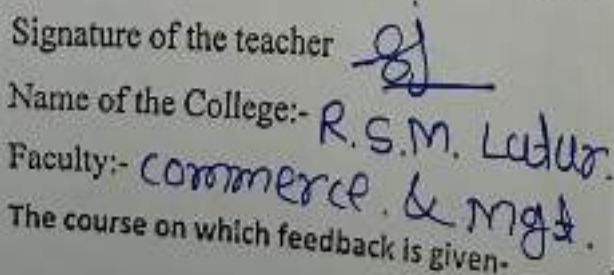 Signature of the teacher
Name of the College:- R.S.M. Latur.
Faculty:- Commerce. & Mgt.
The course on which feedback is given-